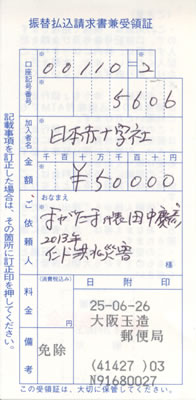 振替払込請求書兼受領証
口座記号番号
00110-2
5606
加入者名
日本赤十字社
金額
千 百 十 万 千 百 十 円
¥50000
ご依頼人
おなまえ
田中
2013年
インド洪水災害
様
料金
(消費税込み)
備考
免除
日附印
25-06-26
大阪玉造
郵便局
(41427)03
N91680027
記載事項を訂正した場合は、その箇所に訂正印を押してください。
この受領証は、大切に保管してください。